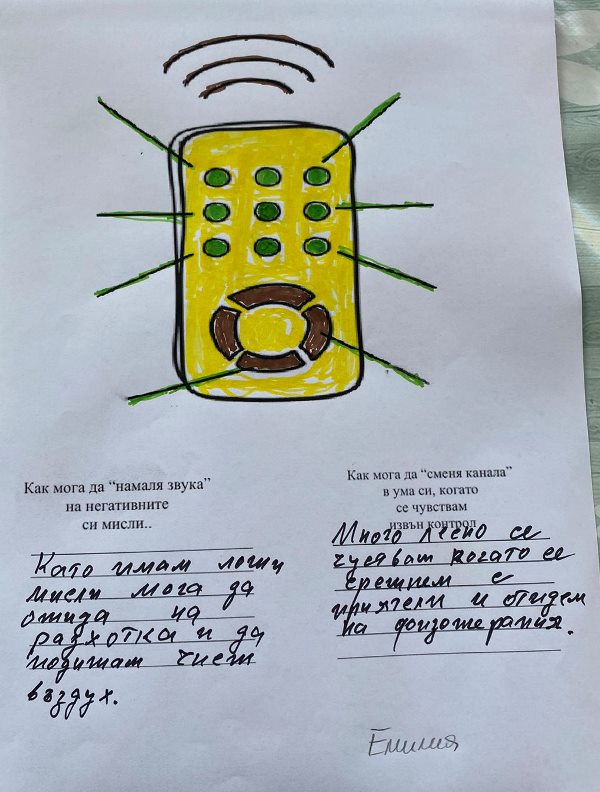 Как мога да “намаля звука”
на негативните
си мисли..
Като имам лоши
мисли мога да
отида на
разхотка и да
подишам чист
въздух.
Как мога да “сменя канала”
в ума си, когато
се чувствам
извън контрол
Много лесно се
чувяват когато се
срешнем с
приятели и отидем
на физотерапия.
Емилия